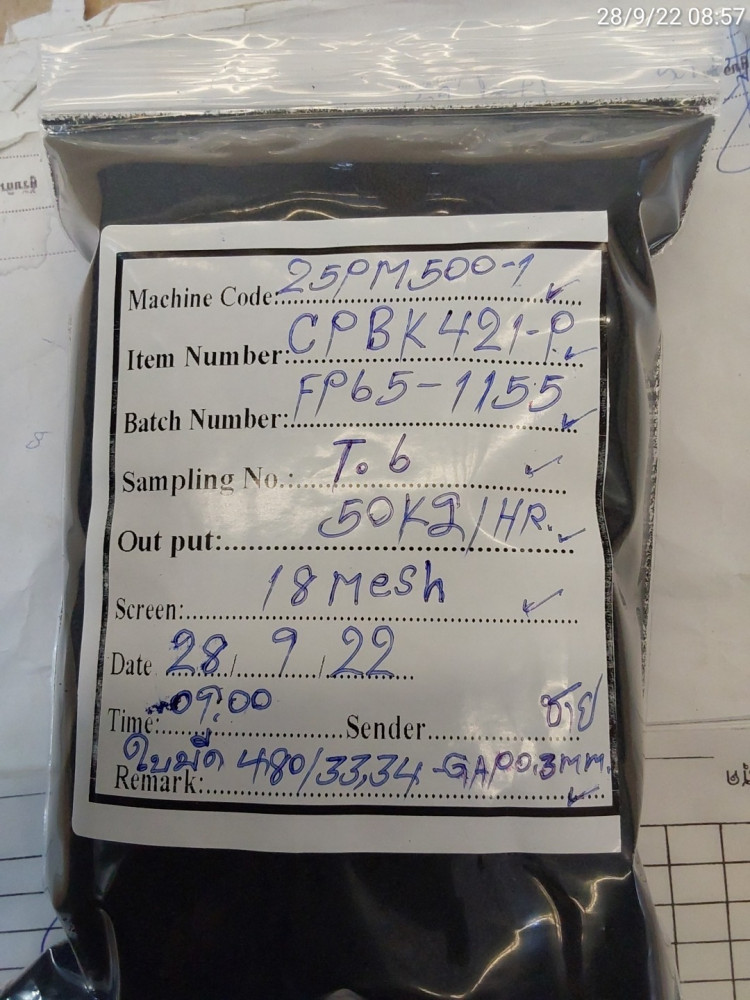 28/9/22 08:57
Machine Code: 25PM500-1 ✓
Item Number: CPBK421-P ✓
Batch Number: FP65-1155 ✓
Sampling No.: T.6 ✓
Out put: 50Kg/HR. ✓
Screen: 18 Mesh ✓
Date 28/9/22
Time: 09:00 Sender ชาย
Remark: ใบมีด 480/33,34 -GAP 0.3mm. ✓